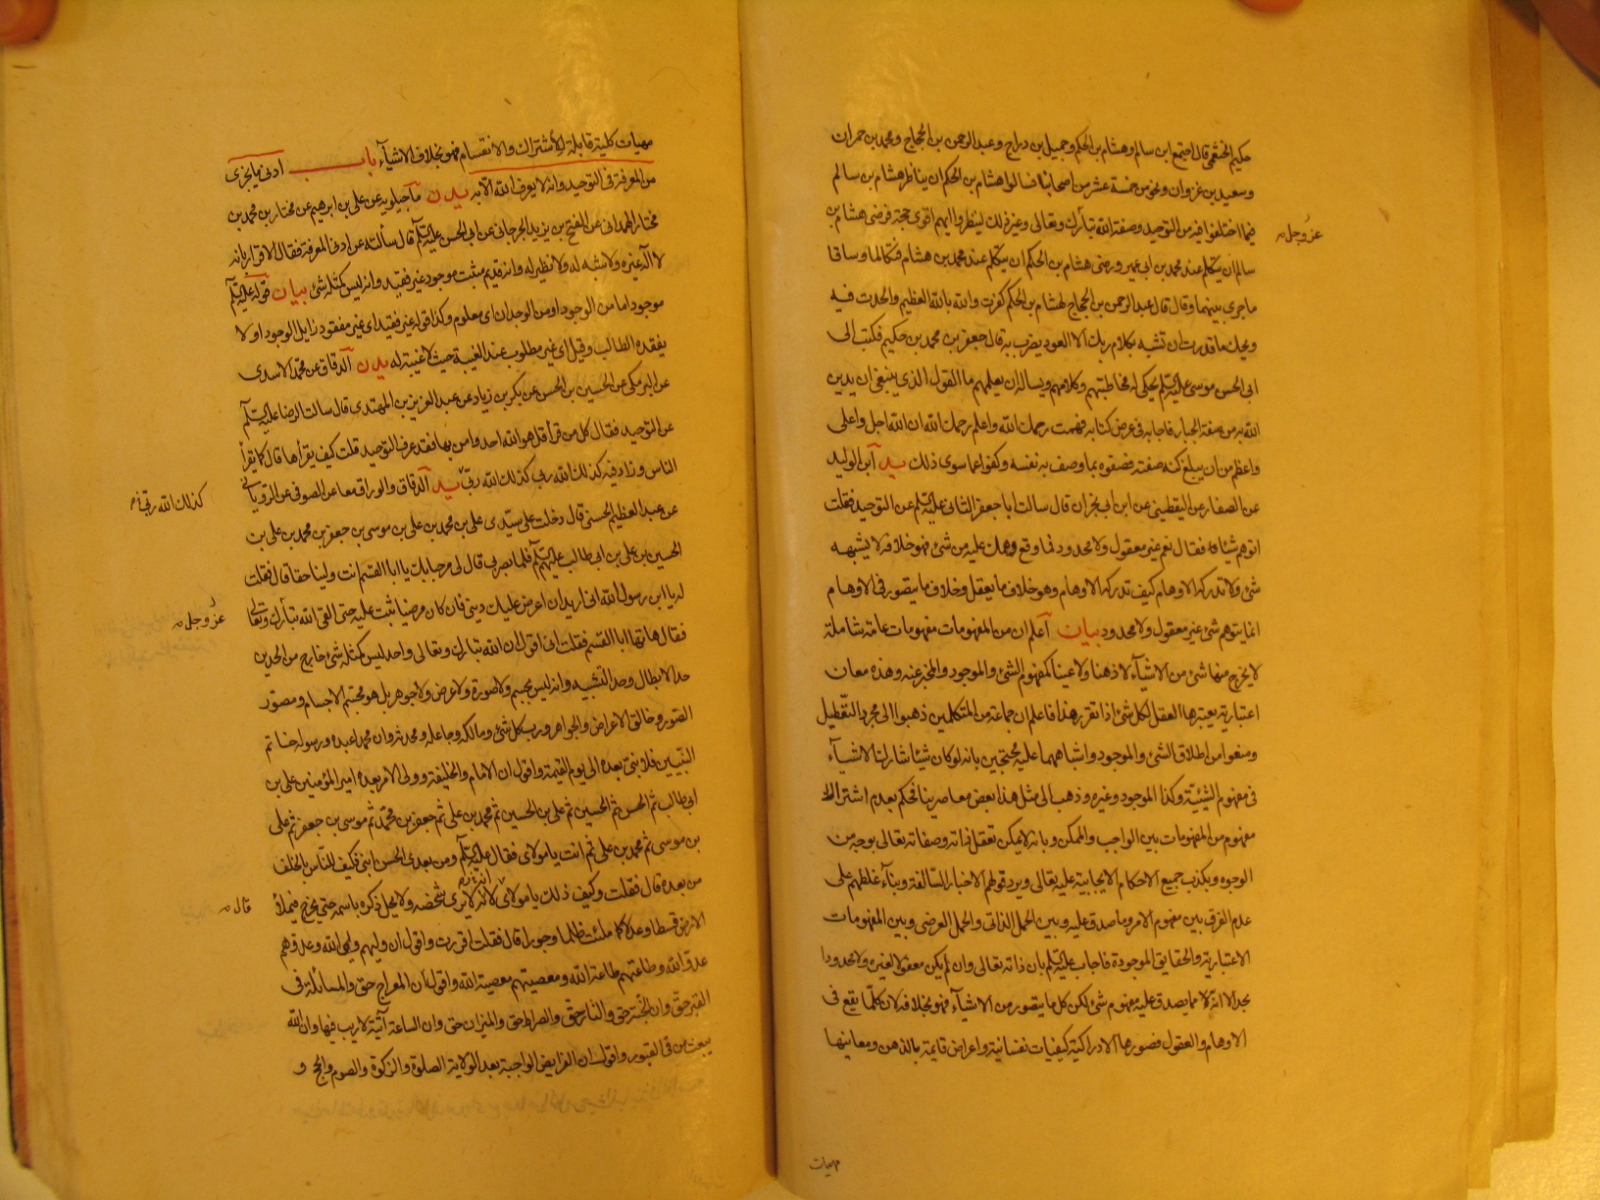 حكيم الخثعمي قال اجتمع ابن سالم وهشام بن الحكم وجميل بن دراج وعبد الرحمن بن الحجاج ومحمد بن حمران
وسعيد بن غزوان ونحو من خمسة عشر من اصحابنا فسالوا هشام بن الحكم ان يناظر هشام بن سالم
فيما اختلفوا فيه من التوحيد وصفة الله تبارك وتعالى وغير ذلك لينظروا ايهم اقوى حجة فرضى هشام بن
عز وجل
سالم ان يتكلم عند محمد بن ابى عمير ورضى هشام بن الحكم ان يتكلم عند محمد بن هشام فتكالما وساقا
ماجرى بينهما وقال قال عبد الرحمن بن الحجاج لهشام بن الحكم كفرت والله بالله العظيم والحدت فيه
ويحك ما قدرت ان تشبه بكلام ربك الا العود يضرب به قال جعفر بن محمد بن حكيم فكتب الى
ابى الحسن موسى عليه السلم يحكى له مخاطبتهم وكلامهم ويساله ان يعلمهم ما القول الذى ينبغى ان يدين
الله به من صفة الجبار فاجابه فى عرض كتابه فهمت رحمك الله واعلم رحمك الله ان الله اجل واعلى
واعظم من ان يبلغ كنه صفته فصفوه بما وصف به نفسه وكفوا عما سوى ذلك يد ابن الوليد
عن الصفار عن اليقطينى عن ابن ابى نجران قال سالت ابا جعفر الثانى عليه السلم عن التوحيد فقلت
اتوهم شيئا فقال نعم غير معقول ولا محدود فما وقع وهمك عليه من شئ فهو خلافه لا يشبهه
شئ ولا تدركه الاوهام كيف تدركه الاوهام وهو خلاف ما يعقل وخلاف ما يتصور فى الاوهام
انما يتوهم شئ غير معقول ولا محدود بيان اعلم ان من المفهومات مفهومات عامة شاملة
لا يخرج منها شئ من الاشيآء لا ذهنا ولا عينا كمفهوم الشئ والموجود والمخبر عنه وهذه معان
اعتبارية يعتبرها العقل لكل شئ اذا تقرر هذا فاعلم ان جماعة من المتكلمين ذهبوا الى مجرد التعطيل
ومنعوا من اطلاق الشئ والموجود واشباههما عليه محتجين بانه لو كان شيئا شارك الاشيآء
فى مفهوم الشيئية وكذا الموجود وغيره وذهب الى مثل هذا بعض معاصرينا فحكم بعدم اشتراك
مفهوم من المفهومات بين الواجب والممكن وبانه لا يمكن تعقل ذاته وصفاته تعالى بوجه من
الوجوه ويكذب جميع الاحكام الايجابية عليه تعالى ويرد قولهم الاخبار السالفة وبنآء غلطهم على
عدم الفرق بين مفهوم الامر وما صدق عليه وبين الحمل الذاتى والحمل العرضى وبين المفهومات
الاعتبارية والحقايق الموجودة فاجاب عليه السلم بان ذاته تعالى وان لم يكن معقولا لغيره ولا محدودا
بحد الا انه لا مما يصدق عليه مفهوم شئ لكن كل ما يتصور من الاشيآء فهو بخلافه لان كلما يقع فى
الاوهام والعقول فصورها الادراكية كيفيات نفسانية واعراض قايمة بالذهن ومعانيها
مهيات
مهيات كلية قابلة للاشتراك والانقسام فهو بخلاف الاشيآء باب ادنى ما يجزى
من المعرفة فى التوحيد وانه لا يعرف الله الا به يد ن ماجيلويه عن على بن ابراهيم عن مختار بن محمد بن
مختار الهمدانى عن الفتح بن يزيد الجرجانى عن ابى الحسن عليه السلم قال سألته عن ادنى المعرفة فقال الاقرار بانه
لا اله غيره ولا شبه له ولا نظير له وانه قديم مثبت موجود غير فقيد وانه ليس كمثله شئ بيان قوله عليه السلم
موجود اما من الوجود او من الوجدان اى معلوم وكذا قوله غير فقيد اى غير مفقود زايل الوجود او لا
يفقده الطالب وقيل اى غير مطلوب عند الغيبة حيث لا غيبة له يد ن الدقاق عن محمد الاسدى
عن البرمكى عن الحسين بن الحسن عن بكر بن زياد عن عبد العزيز بن المهتدى قال سالت الرضا عليه السلم
عن التوحيد فقال كل من قرأ قل هو الله احد وامن بها فقد عرف التوحيد قلت كيف يقرأها قال كما يقرأ
الناس وزاد فيه كذلك الله ربى كذلك الله ربى يد الدقاق والوراق معا عن الصوفى عن الرويانى
كذلك الله ربى
عن عبد العظيم الحسنى قال دخلت على سيدى على بن محمد بن على بن موسى بن جعفر بن محمد بن على بن
الحسين بن على بن ابى طالب عليهم السلم فلما بصر بى قال لى مرحبا بك يا ابا القسم انت ولينا حقا قال فقلت
له يا ابن رسول الله انى اريد ان اعرض عليك دينى فان كان مرضيا ثبت عليه حتى القى الله تبارك وتعالى
عز وجل
فقال هاتها ابا القسم فقلت انى اقول ان الله تبارك وتعالى واحد ليس كمثله شئ خارج من الحدين
حد الابطال وحد التشبيه وانه ليس بجسم ولا صورة ولا عرض ولا جوهر بل هو مجسم الاجسام ومصور
الصور وخالق الاعراض والجواهر ورب كل شئ ومالكه وجاعله ومحدثه وان محمدا عبده ورسوله خاتم
النبيين فلا نبى بعده الى يوم القيمة واقول ان الامام والخليفة وولى الامر بعده امير المؤمنين على بن
ابى طالب ثم الحسن ثم الحسين ثم على بن الحسين ثم محمد بن على ثم جعفر بن محمد ثم موسى بن جعفر ثم على
بن موسى ثم محمد بن على ثم انت يا مولاى فقال عليه السلم ومن بعدى الحسن ابنى فكيف للناس بالخلف
من بعده قال فقلت وكيف ذلك يا مولاى لانه لا يرى شخصه ولا يحل ذكره باسمه حتى يخرج فيملأ
قال
الارض قسطا وعدلا كما ملئت ظلما وجورا قال فقلت اقررت واقول ان وليهم ولى الله وعدوهم
عدو الله وطاعتهم طاعة الله ومعصيتهم معصية الله واقول ان المعراج حق والمسائلة فى
القبر حق وان الجنة حق والنار حق والصراط حق والميزان حق وان الساعة آتية لا ريب فيها وان الله
يبعث من فى القبور واقول ان الفرايض الواجبة بعد الولاية الصلوة والزكوة والصوم والحج و